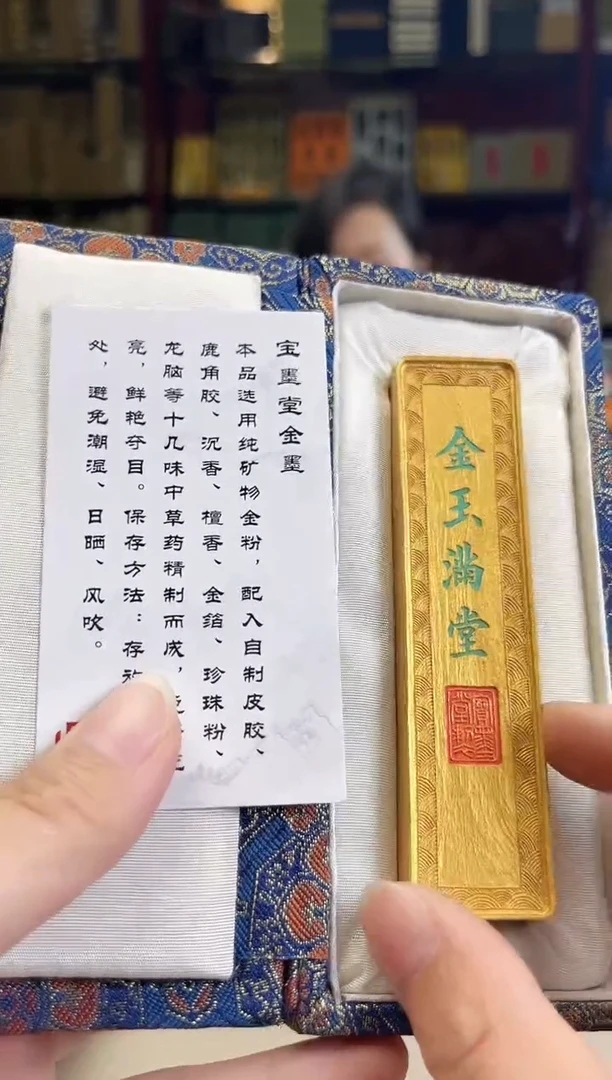 宝墨堂金墨
本品选用纯矿物金粉，配入自制皮胶、
鹿角胶、沉香、檀香、金箔、珍珠粉、
龙脑等十几味中草药精制而成，
亮，鲜艳夺目。保存方法：存
处，避免潮湿、日晒、风吹。
金玉满堂
寶墨堂製